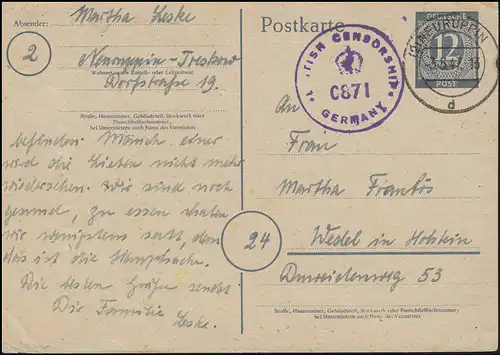 Absender:
Martha Leske
2
Neuruppin-Treskow
Wohnort, auch Zustell- oder Leitpostamt
Dorfstraße 19.
Straße, Hausnummer, Gebäudeteil, Stockwerk oder
Postschließfachnummer;
bei Untermietern auch Name des Vermieters
befinden. Manch einer
wird die Lieben nicht mehr
wiedersehen. Wir sind noch
gesund, zu essen haben
wir wenigstens satt, denn
das ist die Hauptsache.
Die besten Grüßen sendet
Die Familie Leske.
Postkarte
DEUTSCHE
12
POST
NEURUPPIN
d
BRITISH CENSORSHIP
C871
GERMANY
An
Frau
Martha
24
Wedel in Holstein
53
Straße, Hausnummer, Gebäudeteil, Stockwerk oder Postschließfachnummer;
bei Untermietern auch Name des Vermieters